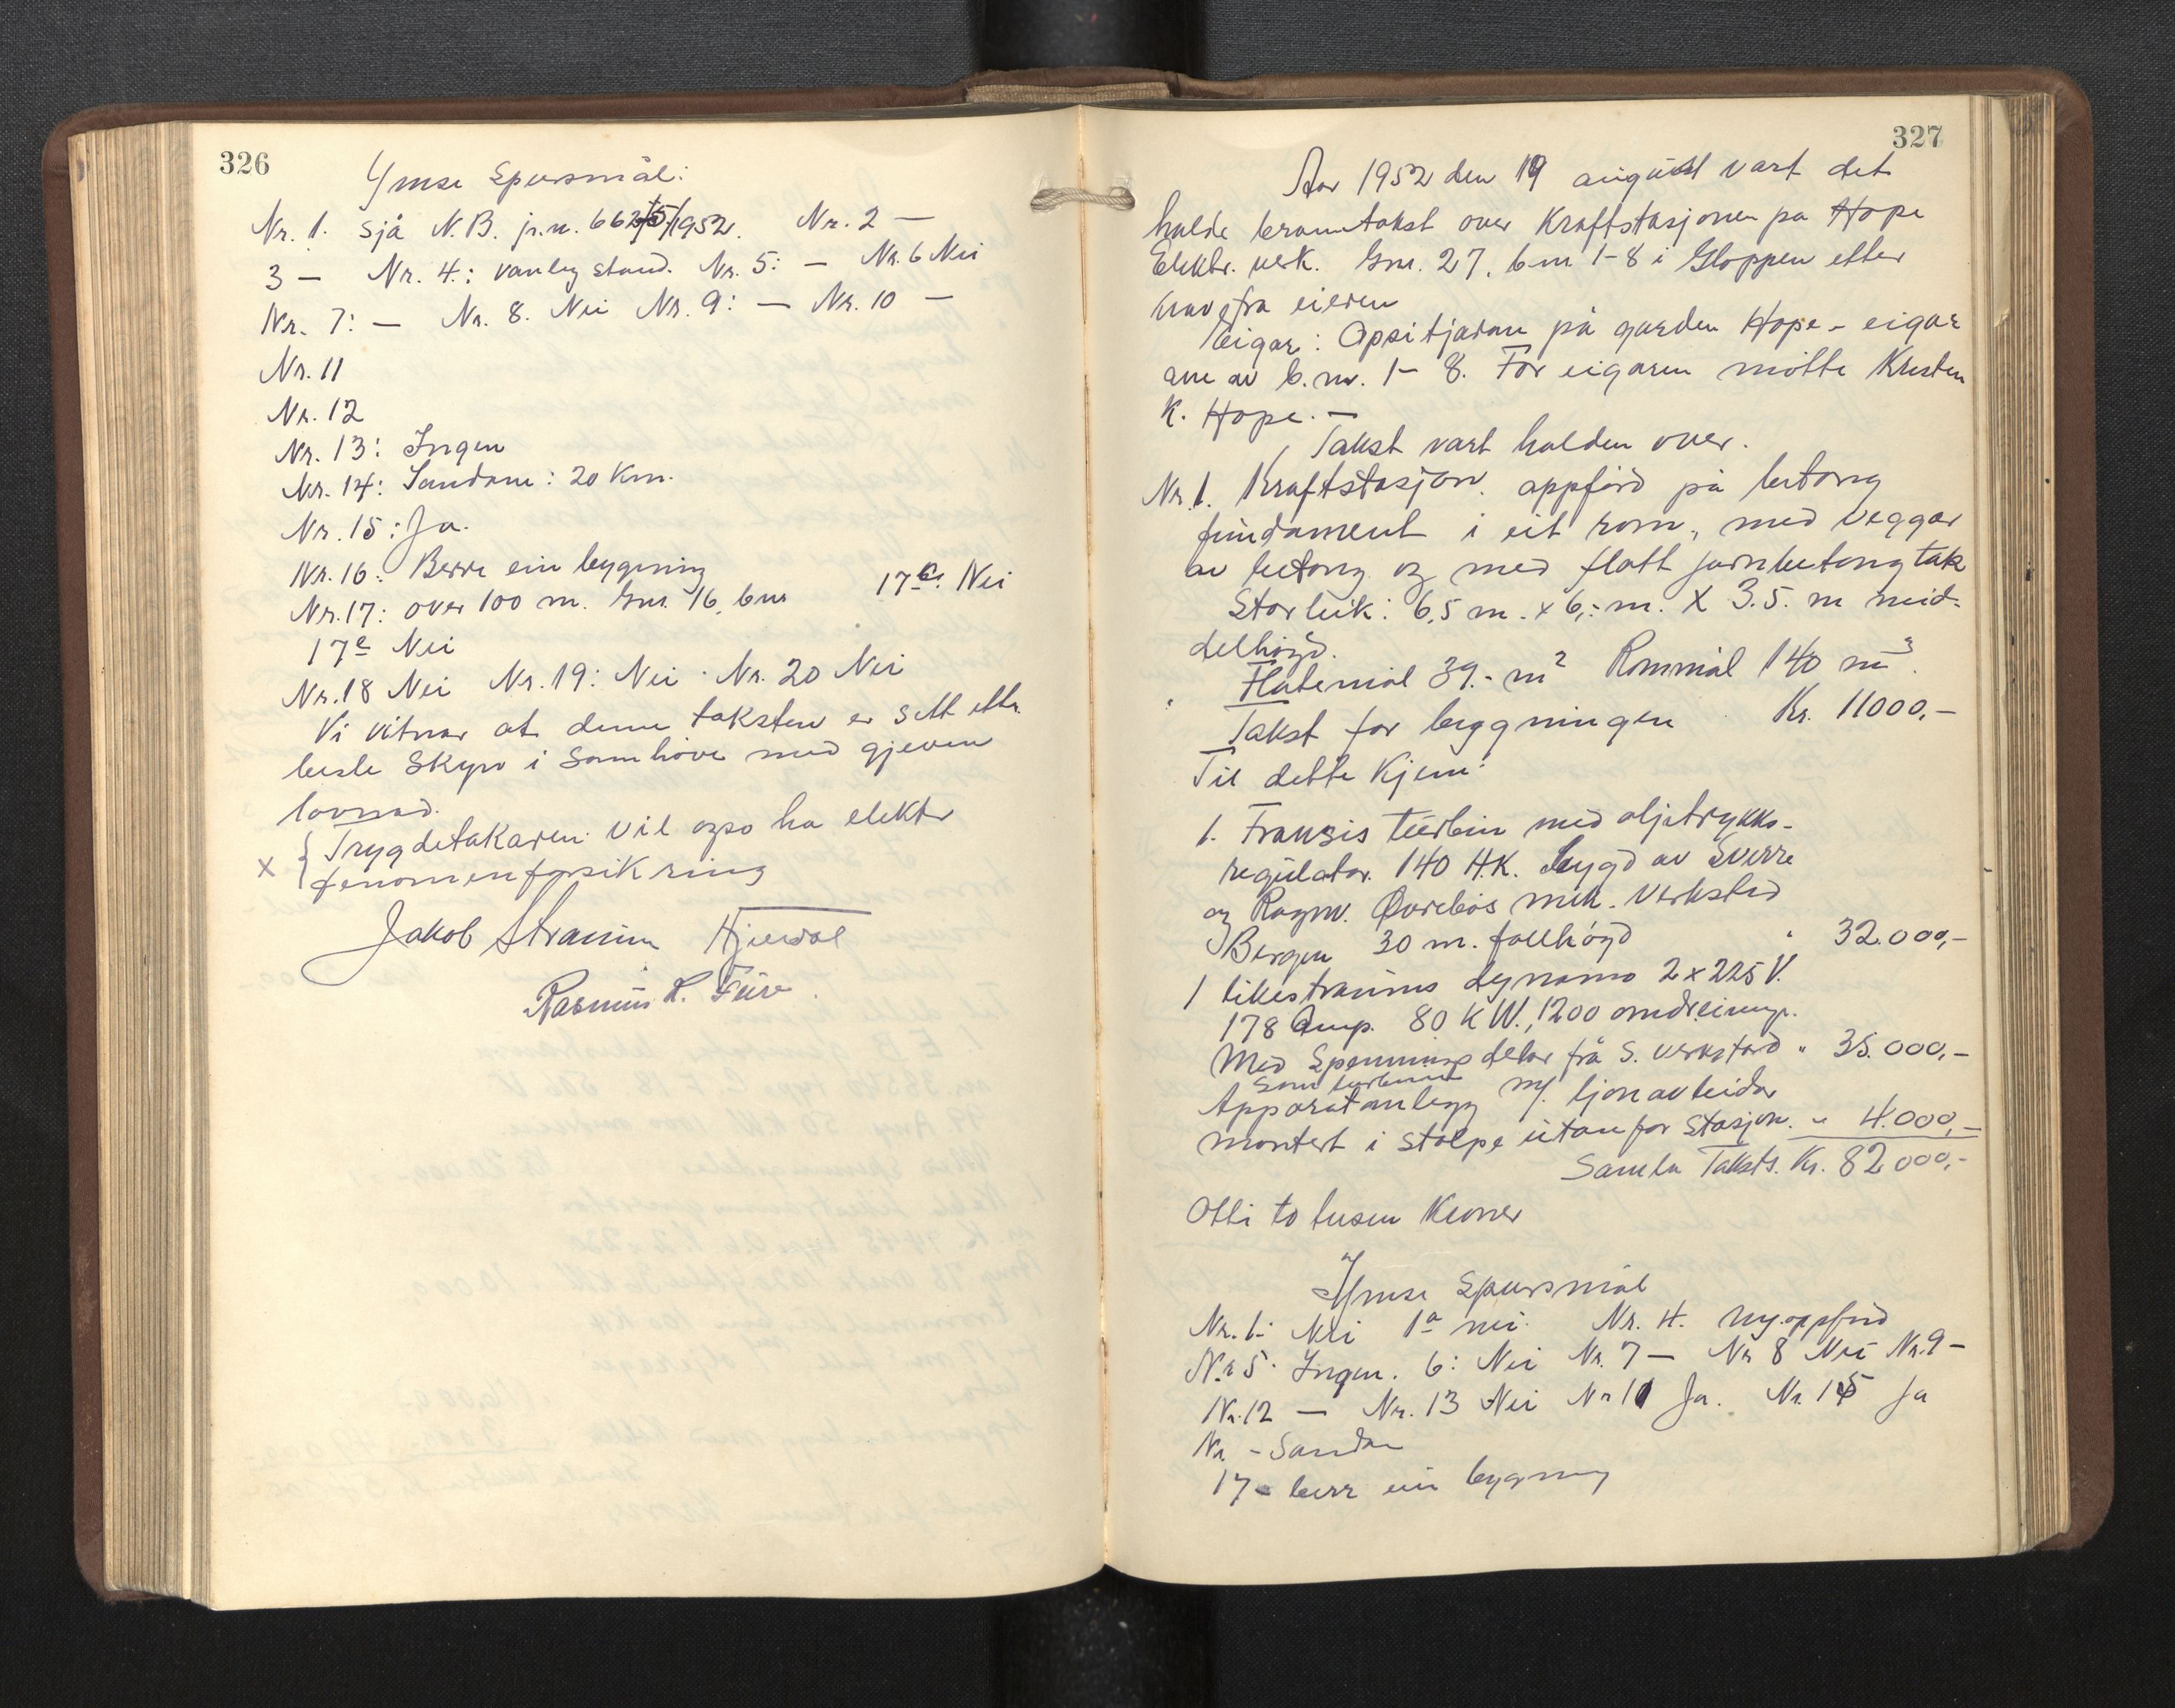 326
Ymse Spursmål:
Nr. 1. Sjå N.B. jr.n. 662/1952. Nr. 2 —
3 — Nr. 4.: vanleg stand. Nr. 5: — Nr. 6 Nei
Nr. 7: — Nr. 8. Nei Nr. 9: — Nr. 10 —
Nr. 11
Nr. 12
Nr. 13: Ingen
Nr. 14: Sandane: 20 Km.
Nr. 15: Ja.
Nr. 16: Berre ein bygning
Nr. 17: over 100 m. Gnr. 16, bnr 17 Nei
17e Nei
Nr. 18 Nei Nr. 19: Nei. Nr. 20 Nei
Vi vitnar at denne taksten er sett etter
beste Skyn i Samhøve med gjeven
lovnad.
x { Trygdetakaren vil ogso ha elektr
fenomenforsikring
Jakob Straume Hjelval
Rasmus R. Fure.
327
Aar 1952 den 19 august vart det
halde branntakst over Kraftstasjonen på Hope
Elektr. verk. Gnr. 27. bnr 1-8 i Gloppen etter
krav frå eieren
Eigar: Opsitjarane på garden Hope - eigar
ane av b.nr. 1- 8. For eigaren møtte Kristen
K. Hope. —
Takst vart halden over.
Nr. 1. Kraftstasjon. oppførd på betong
fundament i eit rom, med veggar
av betong og med flatt jarnbetong tak
Storleik: 6,5 m. x 6,- m. x 3.5. m mid-
delhøgd.
Flatemål 39.- m2 Rommål 140 m3.
Takst for byggningen Kr. 11000,-
Til dette Kjem:
1. Fransis turbin med oljetrykks-
regulator. 140 H.K. bygd av Sverre
og Ragnv. Øvrebøs mek. Verksted
Bergen 30 m. fallhøgd " 32.000,-
1 likestraums dynamo 2 x 225 V.
178 Amp. 80 KW., 1200 omdreiingr.
Med Spenningsdelar frå S. verkstad " 35.000,-
Som turbinen
Apparatanlegg m/ ljonavleidar
montert i stolpe utanfor Stasjon. " 4.000,-
Samla Takst. Kr. 82000,-
Otti to tusen Kroner
Ymse Spursmål
Nr. 1: Nei 1a nei. Nr. 4. Ny oppførd
Nr 5. Ingen. 6: Nei Nr. 7 — Nr 8 Nei Nr. 9 —
Nr. 12 — Nr. 13 Nei Nr 11 Ja. Nr. 15 Ja
Nr. - Sandan
17 - berr ein bygning